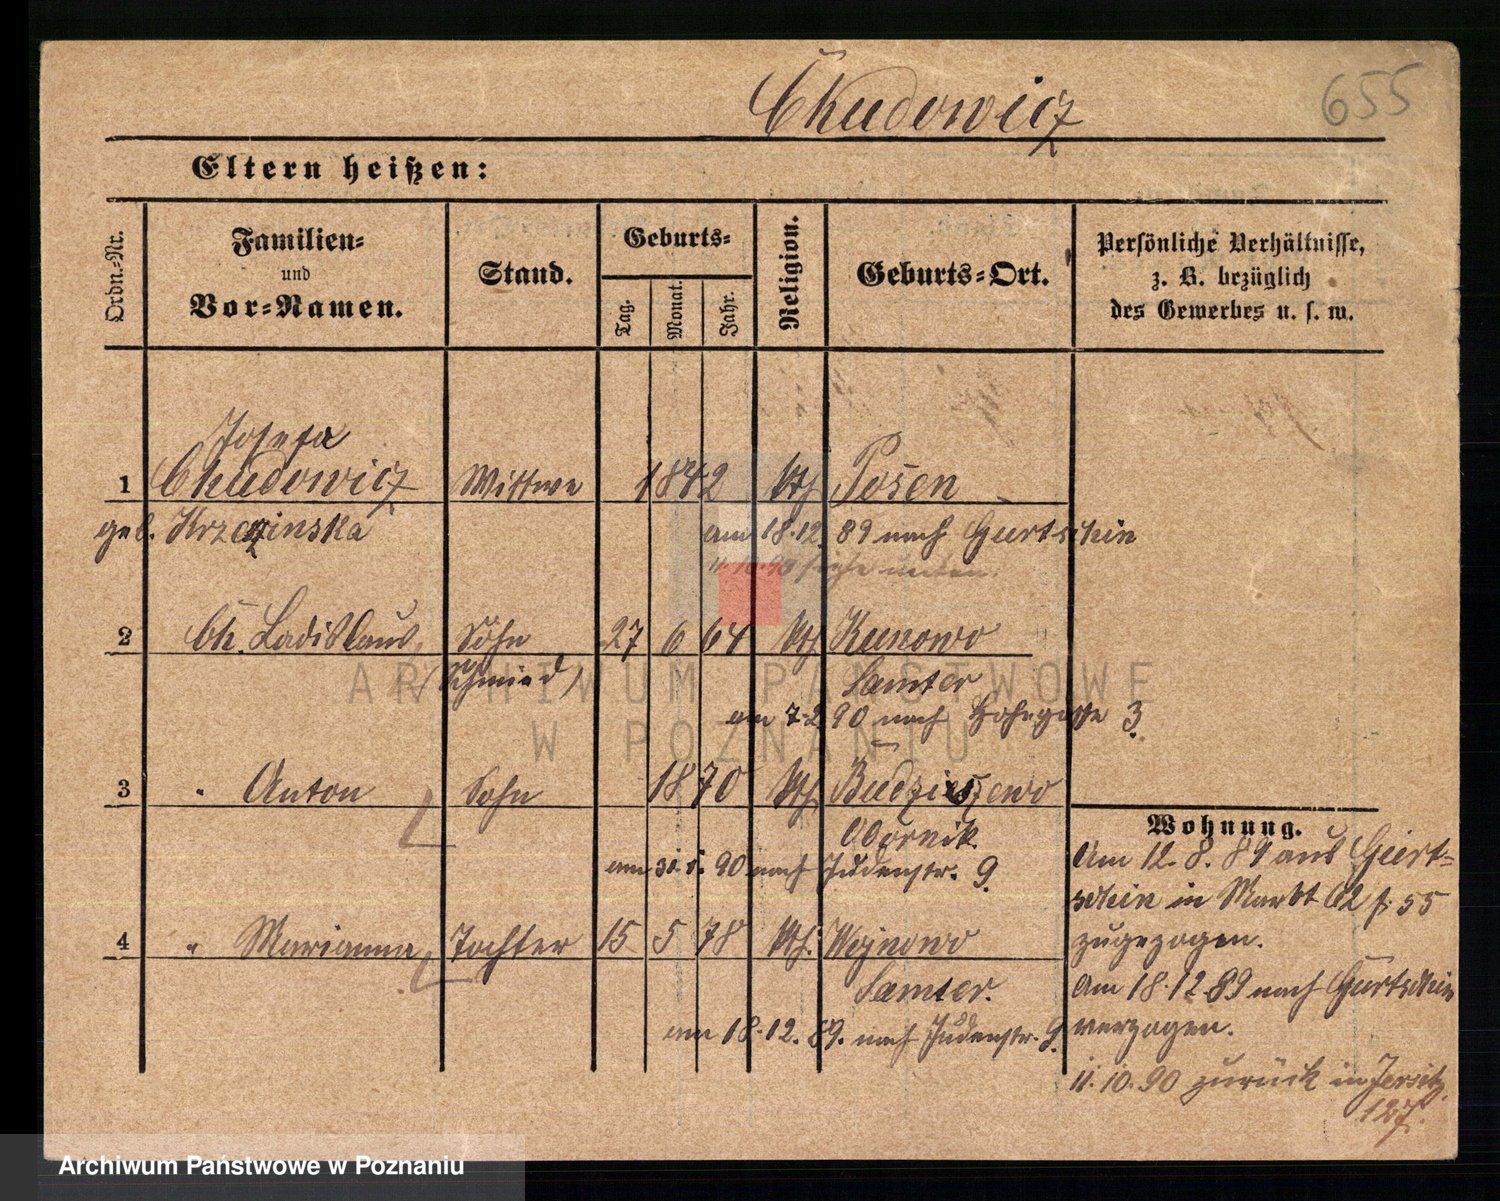 Chudowicz
655
Eltern heißen:
Ordn.-Nr.
Familien-
und
Vor-Namen.
Stand.
Geburts-
Tag.
Monat.
Jahr.
Religion.
Geburts-Ort.
Persönliche Verhältnisse,
z. B. bezüglich
des Gewerbes u. s. w.
Josefa
1 Chudowicz Wittwe 1842 kth Posen
geb. Krzezinska am 18.12. 89 nach Gurtschin
11.10.90 siehe unten.
2 Ch. Ladislaus Sohn 27 6 64 kth Kunowo
(Schmied) Samter
am 7.2 90 nach 3
3 " Anton Sohn 1870 kth Budziszewo
Obornik.
am 90 nach Judenstr. 9.
4 " Marianna Tochter 15 5 78 kth. Wojnowo
Samter.
am 18.12. 89. nach Judenstr. 9.
Wohnung.
Am 12. 8. 89 aus Gurt-
schin in Markt 55
zugezogen.
Am 18.12 89 nach Gurtschin
verzogen.
11.10.90 zurück in Jersitz
127.
ARCHIWUM PAŃSTWOWE
W POZNANIU
Archiwum Państwowe w Poznaniu